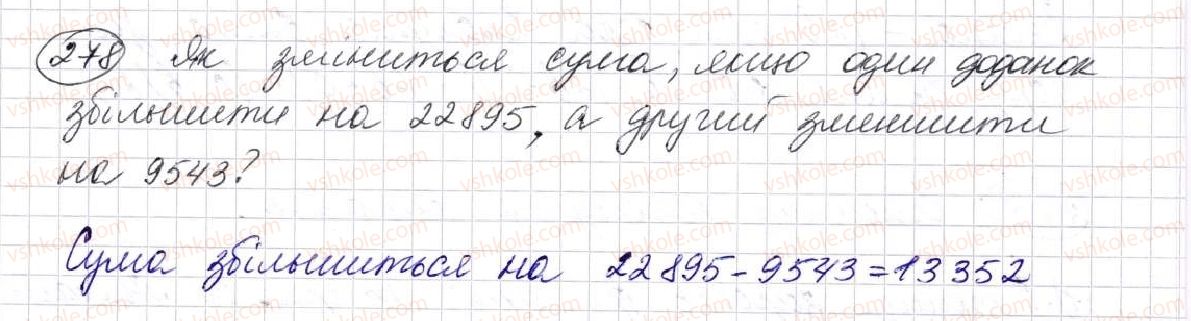 278 Як зміниться сума, якщо один доданок
збільшити на 22895, а другий зменшити
на 9543?
Сума збільшиться на 22895-9543=13352